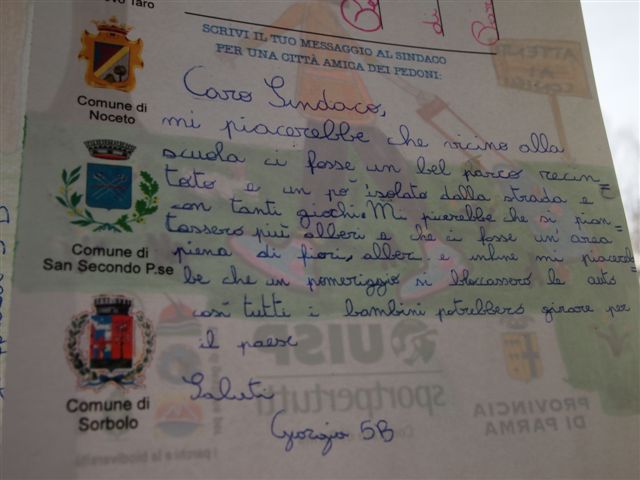 vo Taro
SCRIVI IL TUO MESSAGGIO AL SINDACO
PER UNA CITTÀ AMICA DEI PEDONI:
Comune di
Noceto
Caro Sindaco,
mi piacerebbe che vicino alla
scuola ci fosse un bel parco recin=
tato e un pò isolato dalla strada e
con tanti giochi. Mi picerebbe che si pian=
tassero più alberi e che ci fosse un'area
piena di fiori, alberi e infine mi piacereb=
be che un pomeriggio si bloccassero le auto
così tutti i bambini potrebbero girare per
il paese
Saluti
Giorgio 5B
Comune di
San Secondo P.se
Comune di
Sorbolo
UISP
sportpertutti
PROVINCIA
DI PARMA